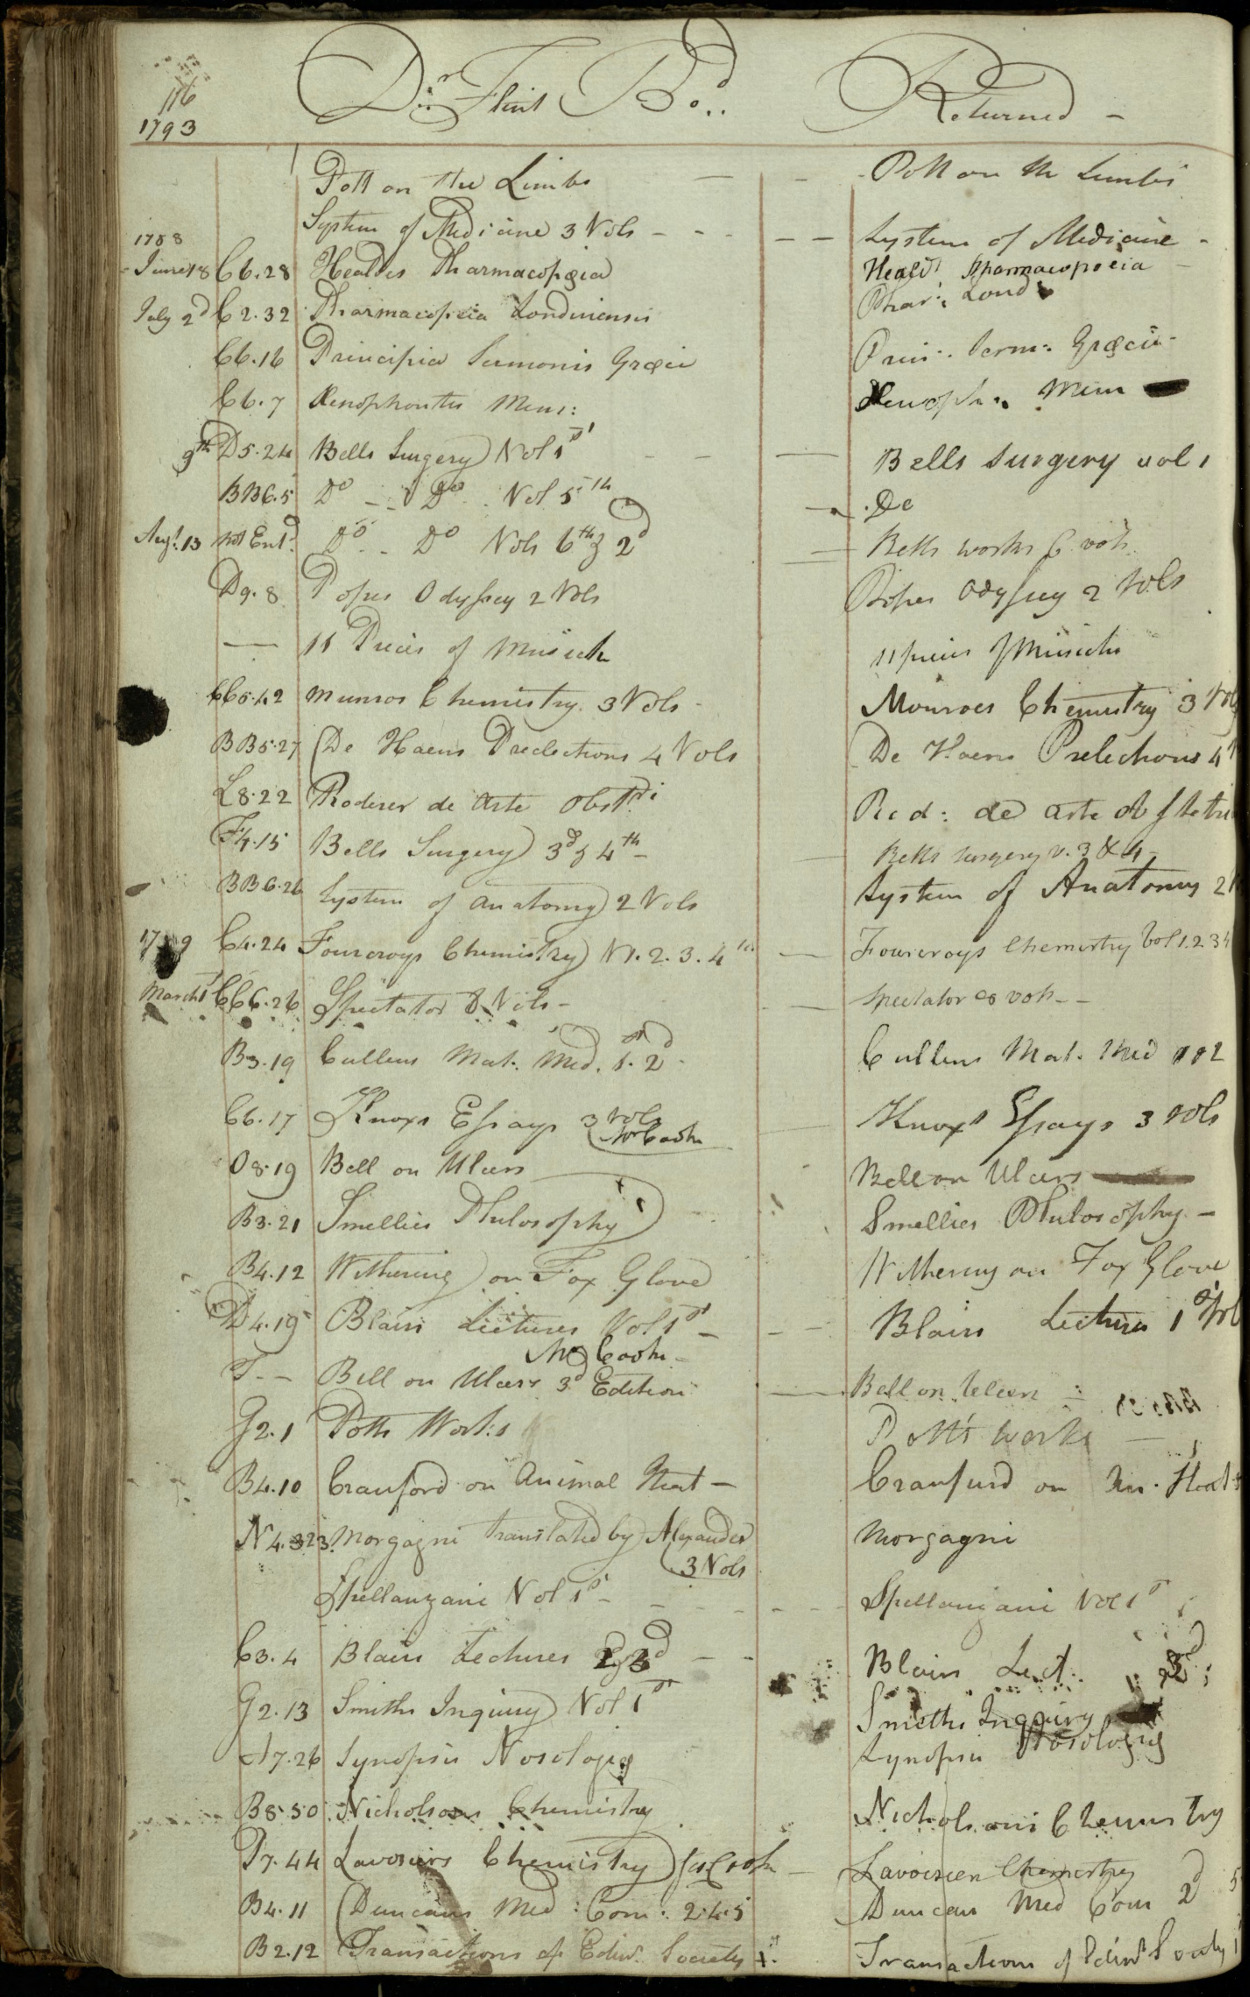 116
1793
Dr. Flint Bo.d Returned -
Pott on the Limbs - - Pott on the Limbs
System of Medicine 3 Vols - - - - - System of Medicine -
1788
June 18 C6.28 Healdes Pharmacopæia Heald's Pharmacopoeia
July 2d C2.32 Pharmacopœia Londinensis Phar: Lond
C6.16 Principia Sermonis Græci Prin: Serm: Græci
C6.7 Xenophontis Mem: Xenoph: Mem
9th D5.24 Bells Surgery Vol 1st - - - Bells Surgery vol 1
BB6.5 Do - - Do Vol 5th - Do
Augt. 13 not Entd. Do - Do Vols 6th & 2d - Bells works 6 vols
D9.8 Popes Odyssey 2 Vols Popes Odyssey 2 Vols
- 11 Pieces of Musick 11 pieces of Musick
CC5.42 Munros Chemistry 3 Vols - Monroes Chemistry 3 Vols
BB5.27 De Haens Prælections 4 Vols De Haens Prelections 4
L8.22 Roderer de Arte Obstri Red: de arte obstetri
F4.15 Bells Surgery 3d & 4th - - Bells Surgery v. 3 & 4 -
BB6.26 System of Anatomy 2 Vols System of Anatomy 2
1789 C4.24 Fourcroys Chemistry V 1. 2. 3. 4th - Fourcroys Chemistry Vol 1 2 3 4
March 1 CC6.26 Spectator 8 Vols - - Spectator 8 vols - -
B3.19 Cullens Mat. Med. 1st. 2d - Cullens Mat. Med 1 2
C6.17 Knoxs Essays 3 Vols - Knox's Essays 3 Vols
Mr Cooke
O8.19 Bell on Ulcers Bell on Ulcers
B3.21 Smellies Philosophy - Smellies Philosophy -
B4.12 Withering on Fox Glove Withering on Fox Glove
D4.19 Blairs Lectures Vol 1st - - - Blairs Lectures 1st Vol
Mr Cooke -
T - - Bell on Ulcers 3d Edition - Bell on Ulcers
G2.1 Potts Works Pott's works -
B4.10 Crauford on Animal Heat - Craufurd on An. Heat
N4.323 Morgagni translated by Alexander Morgagni
3 Vols
Spellanzani Vol 1st - - - - - Spellanzani Vol 1st
C3.4 Blairs Lectures 2 & 3d - - Blairs Lect. 2 3d
G2.13 Smiths Inquiry Vol 1st Smiths Inquiry
A7.26 Synopsis Nosologiæ Synopsis Nosologiæ
B8.50 Nicholsons Chemistry Nicholsons Chemistry
P7.44 Lavosiers Chemistry - Lavoisier Chemistry
B4.11 Duncans Med: Com: 2.4.5 Duncan Med Com 2d 5
B2.12 Transactions of Edinr. Society 1st. Transactions of Edinr Society 1